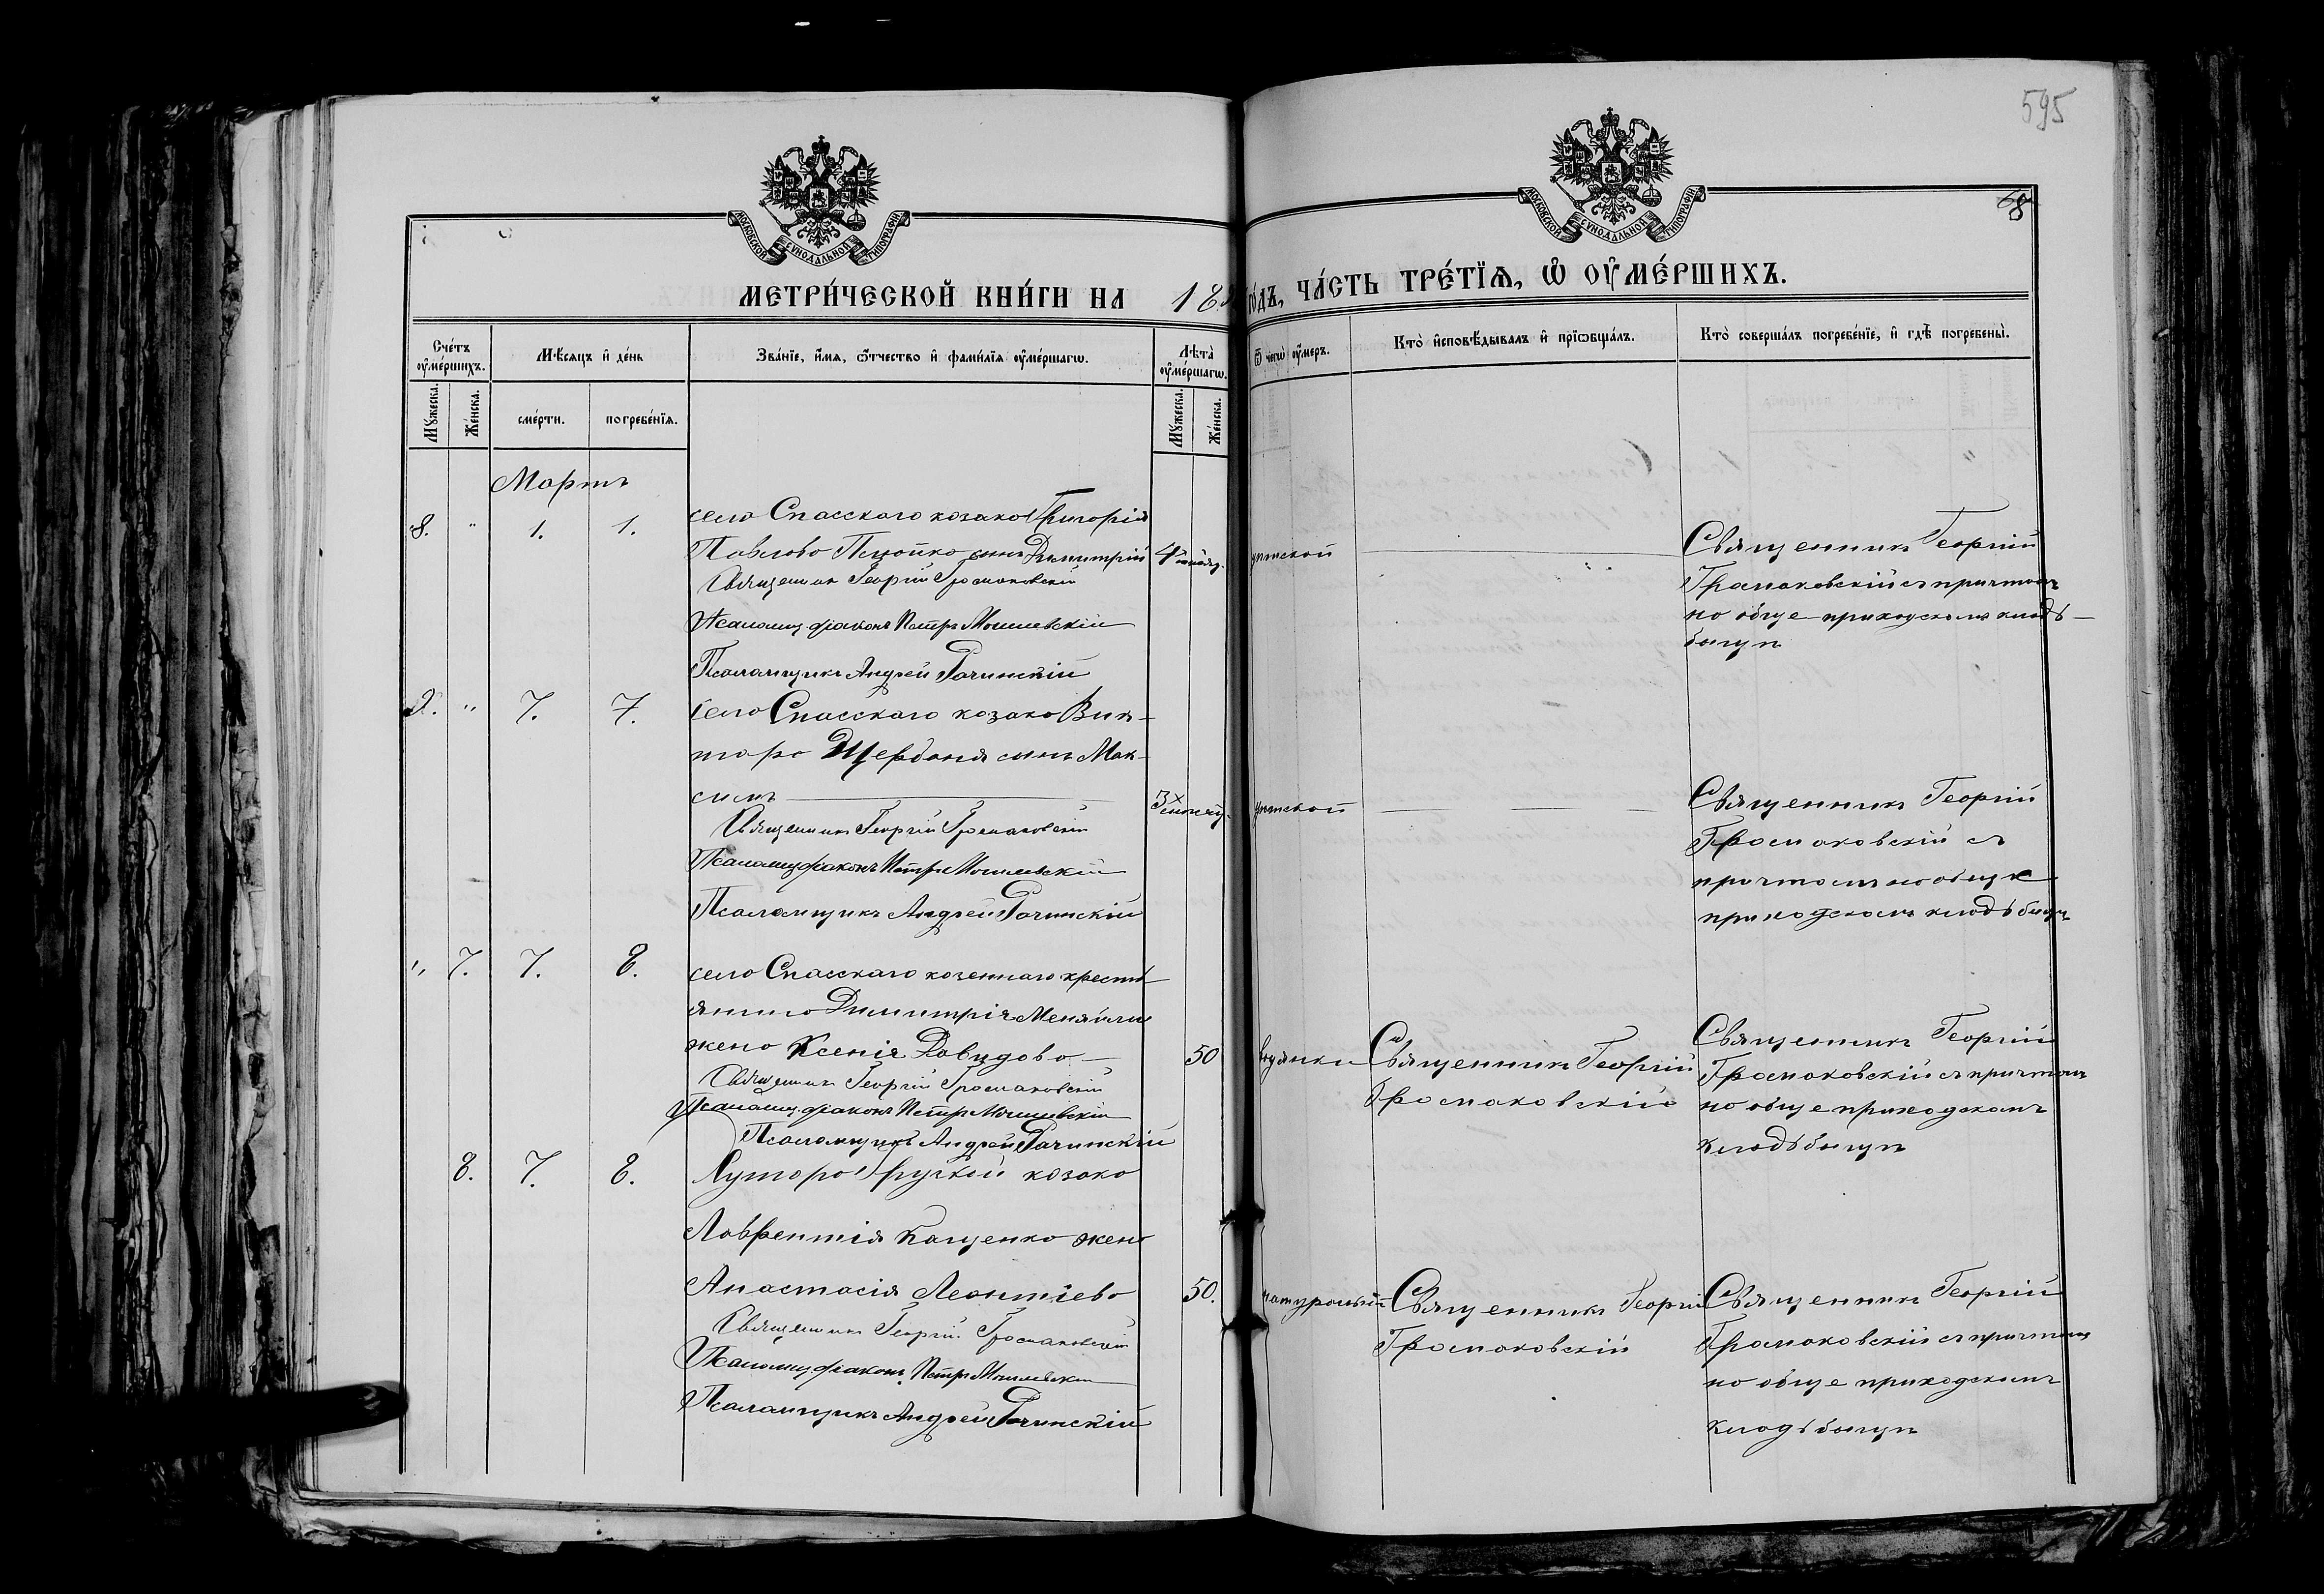 595
МОСКОВСКОЙ СѴНОДАЛЬНОЙ ТИПОГРАФІИ
МОСКОВСКОЙ СѴНОДАЛЬНОЙ ТИПОГРАФІИ
8
МЕТРИ́ЧЕСКОЙ КНИ́ГИ НА 18
го́дъ, ЧА́СТЬ ТРЕ́ТЇѦ, Ѡ҆ ОУ҆МЕ́РШИХЪ.
Сче́тъ оу҆ме́ршихъ.
Мѣ́сяцъ и҆ де́нь
Зва́нїе, и҆́мя, ѻ҆́тчество и҆ фами́лїя оу҆ме́ршагѡ.
Лѣта̀ оу҆ме́ршагѡ.
Ѿ чегѡ̀ оу҆́меръ.
Кто̀ и҆сповѣ́дывалъ и҆ прїѡбща́лъ.
Кто̀ соверша́лъ погребе́нїе, и҆ гдѣ̀ погребены̀.
Мꙋ́жеска.
Же́нска.
сме́рти.
погребе́нїя.
Мꙋ́жеска.
Же́нска.
Мартъ
8. " 1. 1.
села Спасскаго козака Григорія
Павлова сынъ Димитрій 4
Священникъ Георгій Громаковскій
Псаломщ. діаконъ Петръ Могилевскій
Псаломщикъ Андрей Рачинскій
Священникъ Георгій
Громаковскій съ причтомъ
на обще приходскомъ кладъ-
бищѣ
9. " 7. 7.
села Спасскаго козака Вик-
тора Щербаня сынъ Мак-
симъ
Священникъ Георгій Громаковскій
Псаломщ. діаконъ Петръ Могилевскій
Псаломщикъ Андрей Рачинскій
Священникъ Георгій
Громаковскій съ
причтомъ на обще
приходскомъ кладъбищѣ
" 7. 7. 8.
села Спасскаго козеннаго крестъ-
янина Димитрія
жена Ксенія Давидова 50
Священникъ Георгій Громаковскій
Псаломщ. діаконъ Петръ Могилевскій
Псаломщикъ Андрей Рачинскій
водянки
Священникъ Георгій
Громаковскій
Священникъ Георгій
Громаковскій съ причтомъ
на обще приходскомъ
кладъбищѣ
8. 7. 8.
Хутора козака
Лаврентія Кащенко жена
Анастасія Леонтіева 50.
Священникъ Георгій Громаковскій
Псаломщ. діаконъ Петръ Могилевскій
Псаломщикъ Андрей Рачинскій
Священникъ Георгій
Громаковскій
Священникъ Георгій
Громаковскій съ причтомъ
на обще приходскомъ
кладъбищѣ